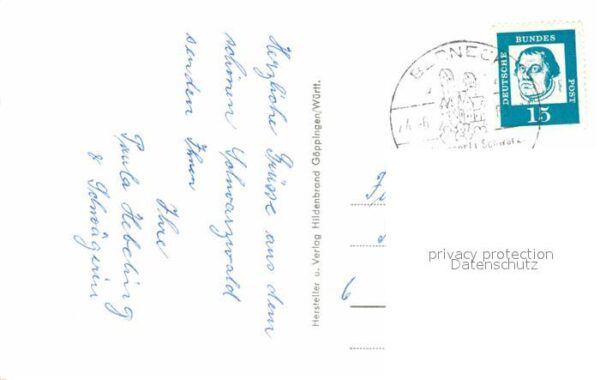 Herzliche Grüsse aus dem
schönen Schwarzwald
senden Ihnen
Ihre
Paula Hebeling
& Schwägerin
Hersteller u. Verlag Hildenbrand Göppingen/Württ.
BERNECK
DEUTSCHE
BUNDES
POST
15
privacy protection
Datenschutz